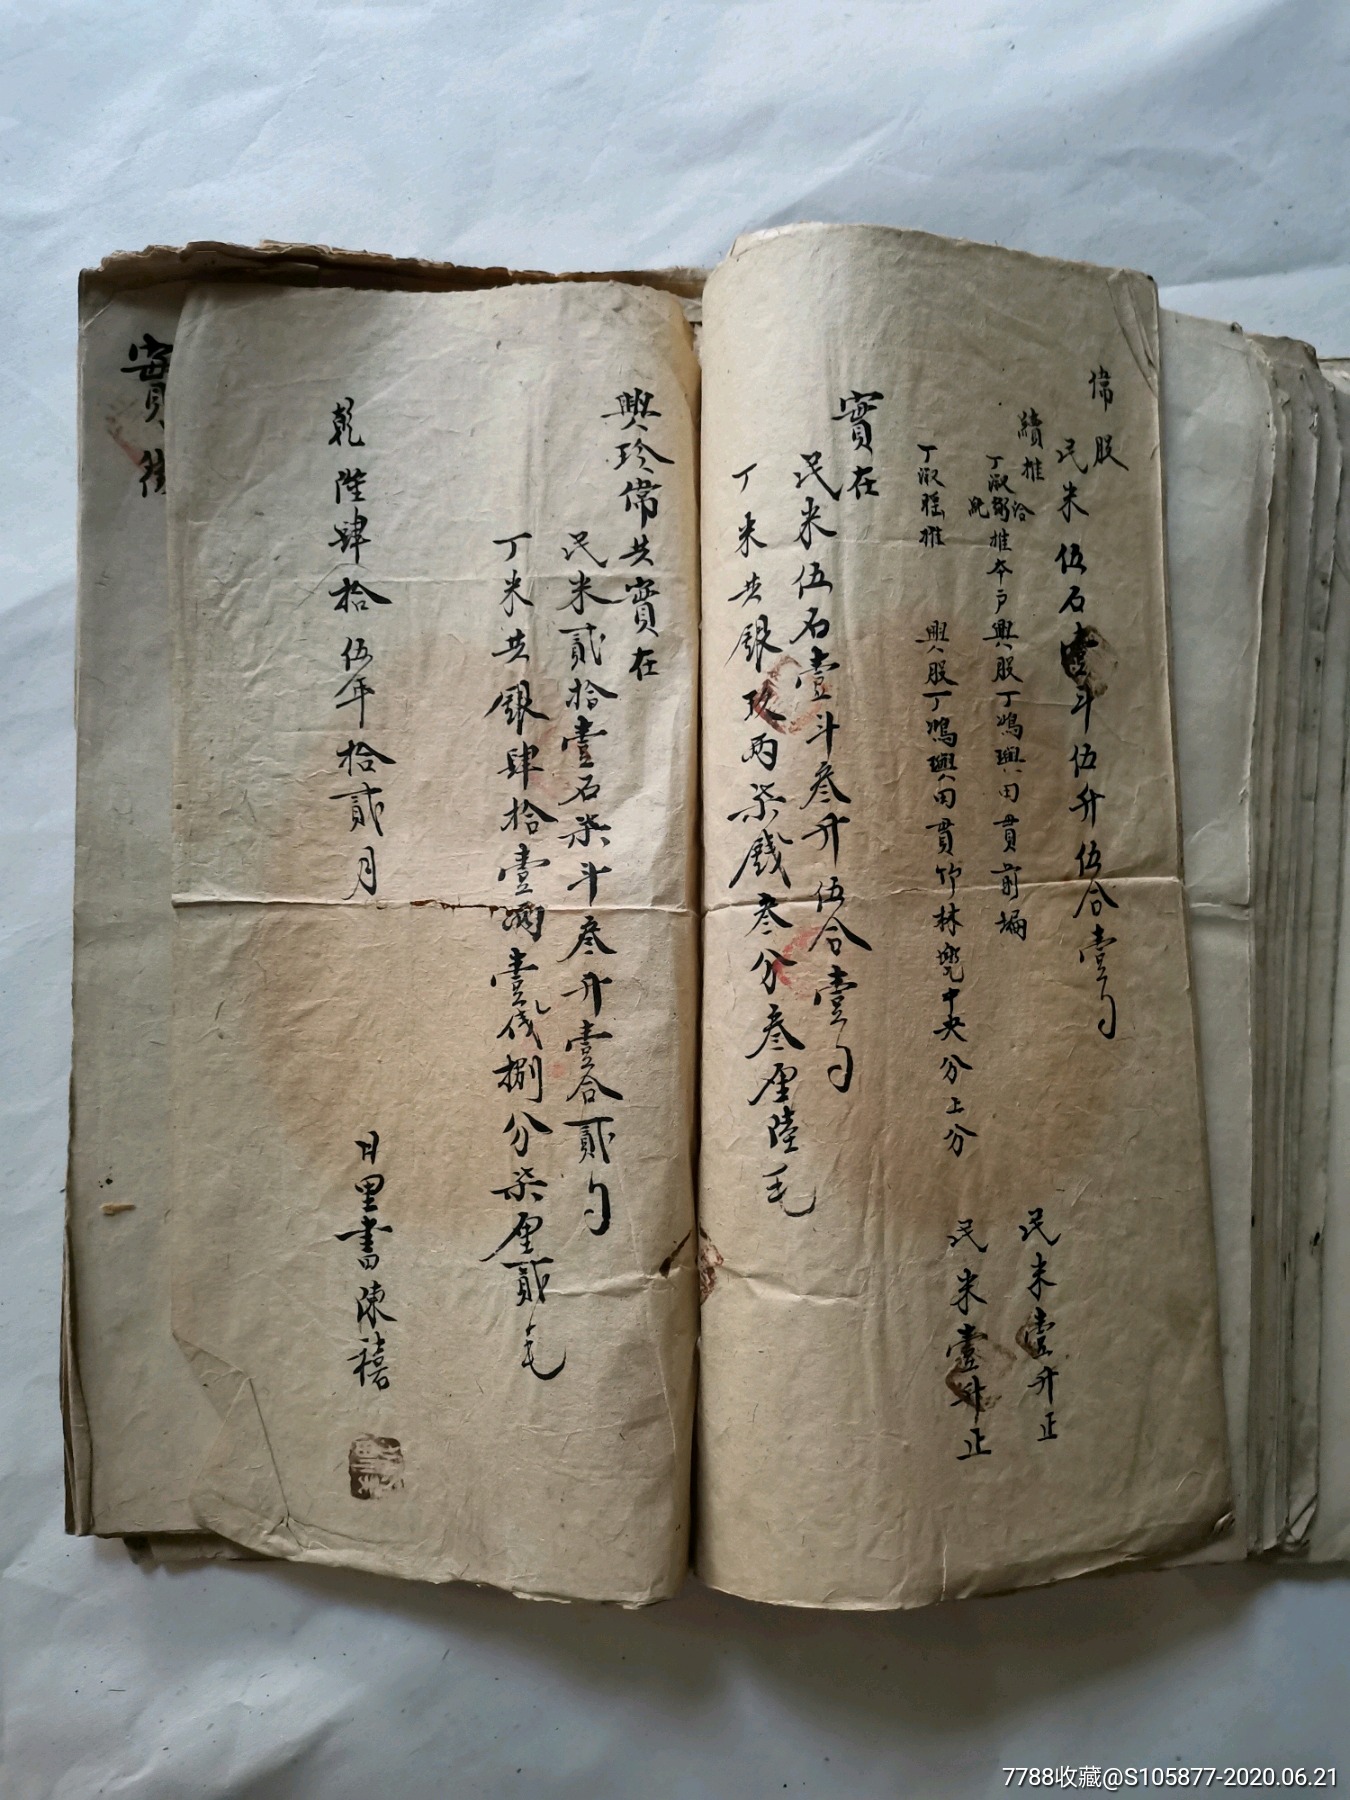 偉股
民米伍石壹斗伍升伍合壹勺
續推
丁淑弼推本戶興股丁鴻興田貫前塥
民米壹升正
丁淑瑶推 興股丁鴻興田貫竹林兠中央分上分
民米壹升正
實在
民米伍石壹斗叁升伍合壹勺
丁米共銀玖兩柒錢叁分叁厘陸毛
興珍偉共實在
民米貳拾壹石柒斗叁升壹合貳勺
丁米共銀肆拾壹兩壹錢捌分柒厘貳毛
乾隆肆拾伍年拾貳月 日里書陳禧
實
7788收藏@S105877-2020.06.21